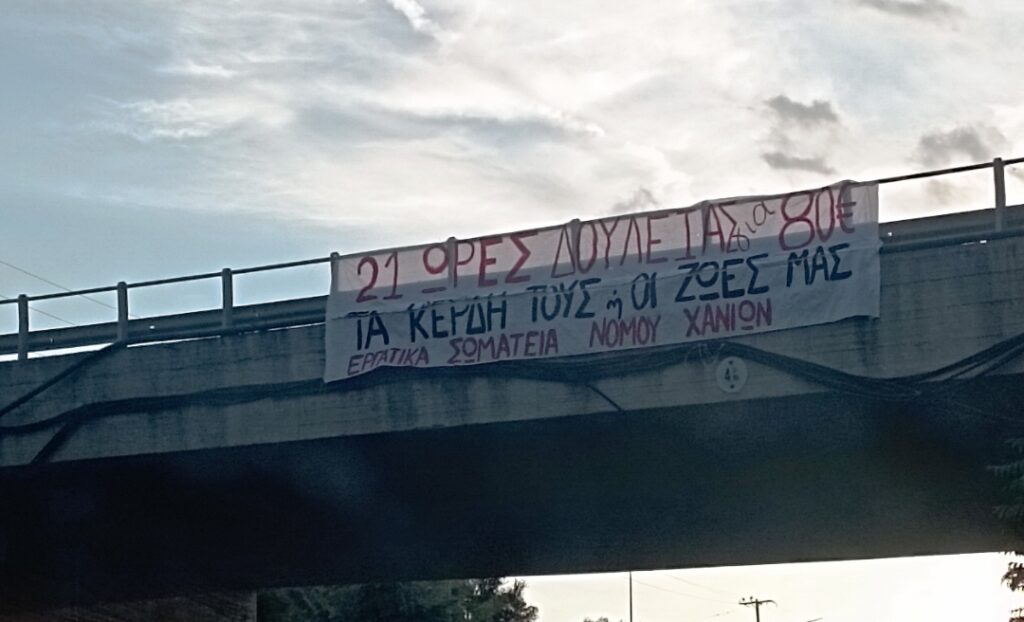 21 ΩΡΕΣ ΔΟΥΛΕΙΑΣ για 80€
ΤΑ ΚΕΡΔΗ ΤΟΥΣ ή ΟΙ ΖΩΕΣ ΜΑΣ
ΕΡΓΑΤΙΚΑ ΣΩΜΑΤΕΙΑ ΝΟΜΟΥ ΧΑΝΙΩΝ